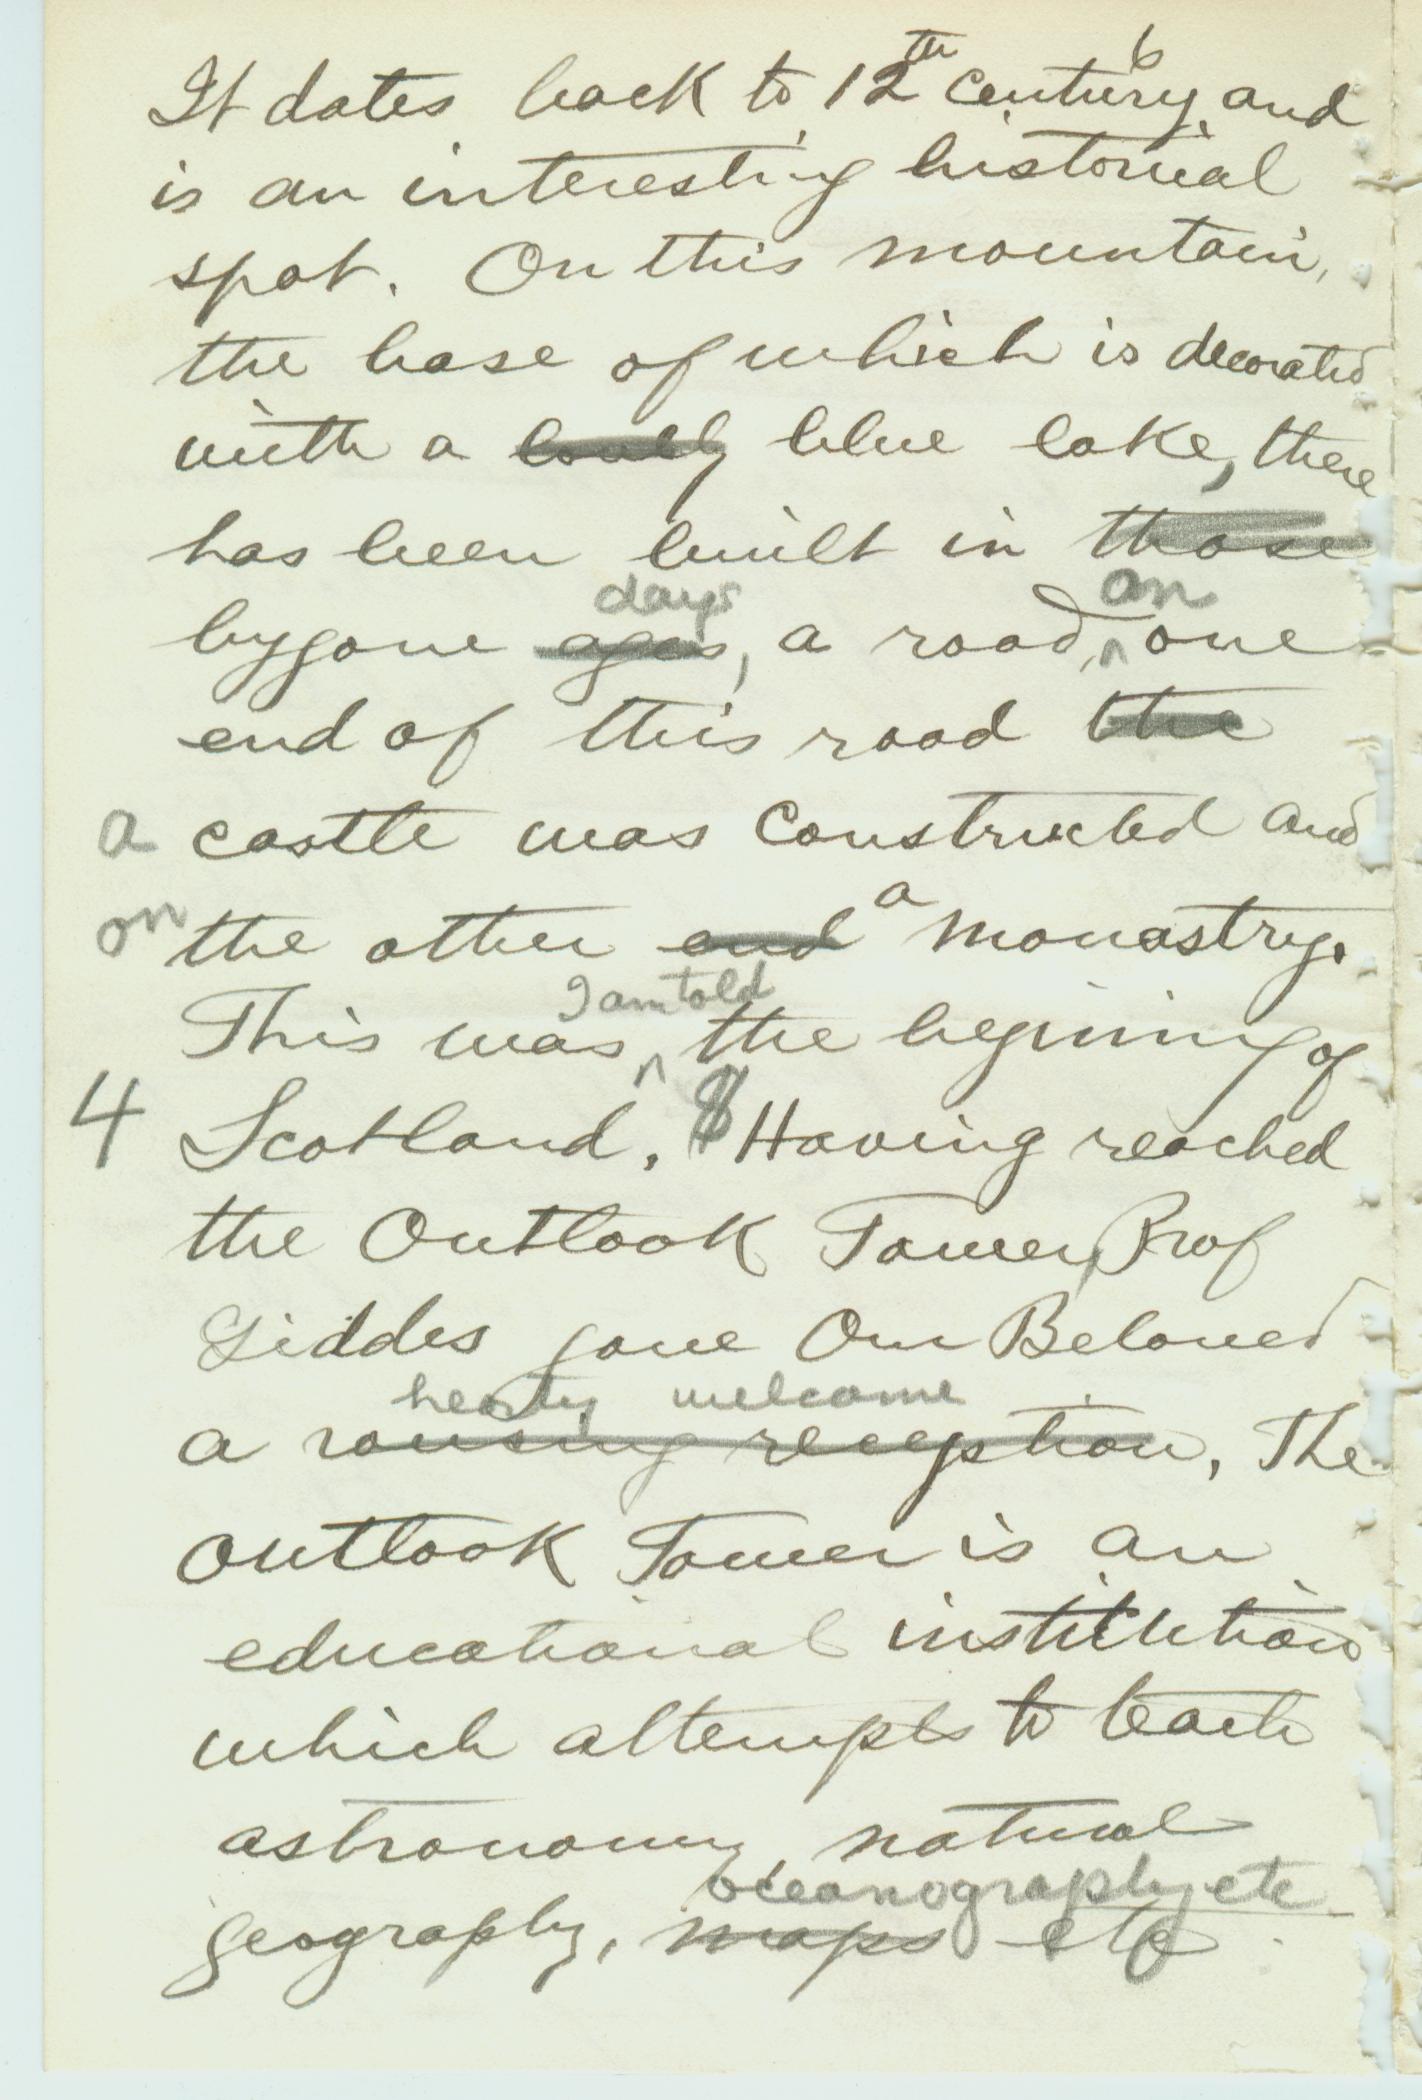 6
It dates back to 12th Century, and
is an interesting historical
spot. On this mountain,
the base of which is decorated
with a lovely blue lake, there
has been built in those
days an
bygone ages, a road, ^ one
end of this road the
a castle was constructed and
a
on the other end monastry.
I am told
This was ^ the begining of
4 Scotland. Having reached
the Outlook Tower, Prof
Giddes gave Our Beloved
hearty welcome
a rousing reception, The
Outlook Tower is an
educational institution
which attempts to teach
astronomy, natural
oceanography, etc
geography, maps etc